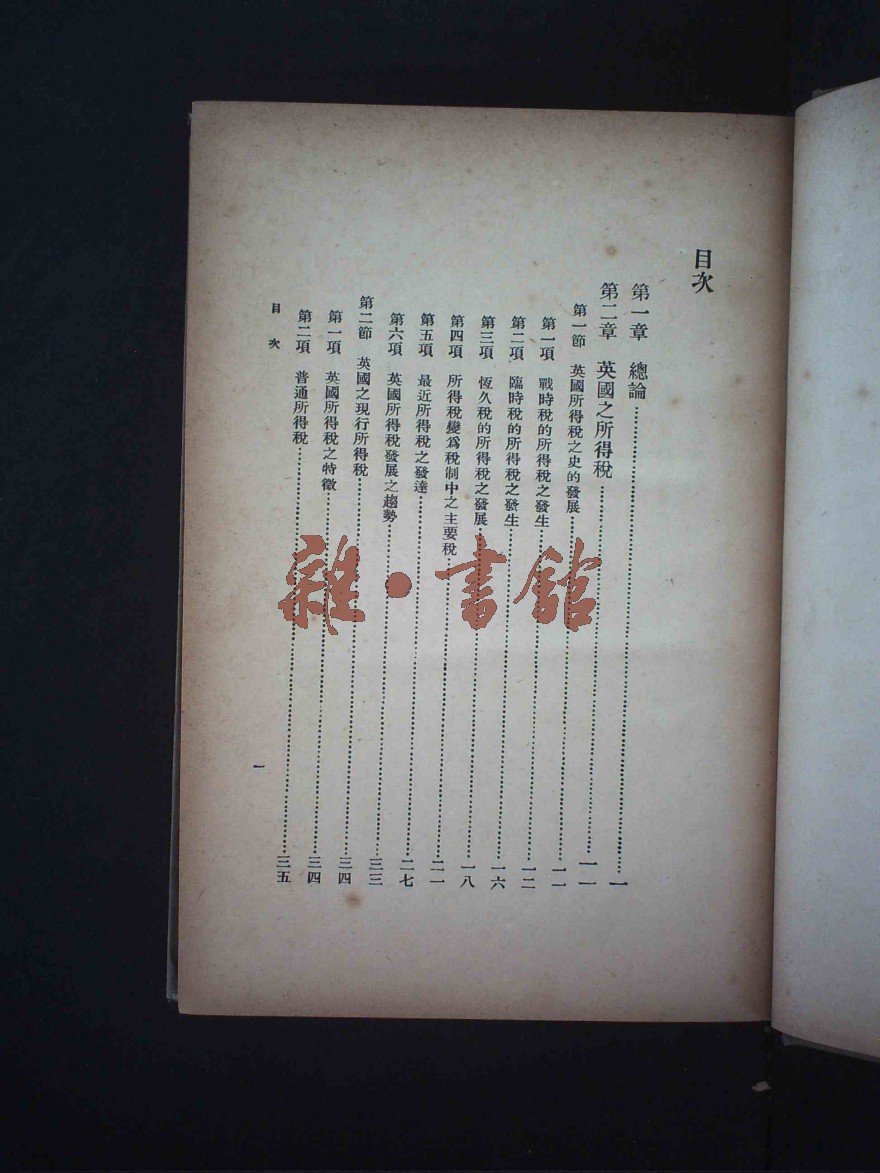 目次
第一章　總論……一
第二章　英國之所得稅……一一
第一節　英國所得稅之史的發展……一一
第一項　戰時稅的所得稅之發生……一二
第二項　臨時稅的所得稅之發生……一六
第三項　恆久稅的所得稅之發展……一八
第四項　所得稅變爲稅制中之主要稅……二一
第五項　最近所得稅之發達……二七
第六項　英國所得稅發展之趨勢……三三
第二節　英國之現行所得稅……三四
第一項　英國所得稅之特徵……三四
第二項　普通所得稅……三五
目次
一
雜·書館